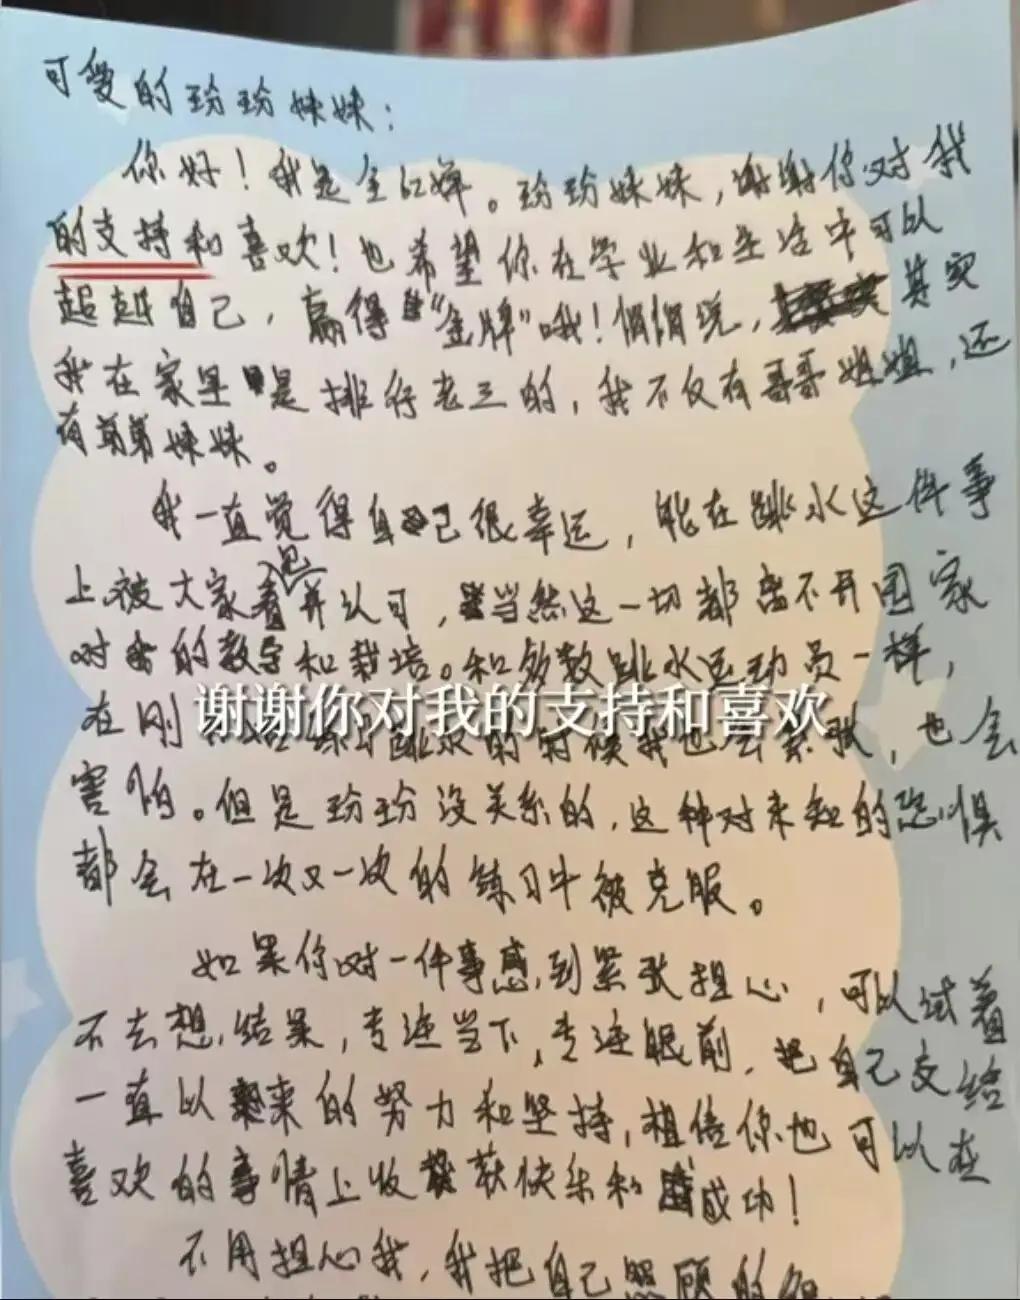 可爱的玢玢妹妹：
你好！我是全红婵。玢玢妹妹，谢谢你对我
的支持和喜欢！也希望你在学业和生活中可以
超越自己，赢得“金牌”哦！悄悄说，其实
我在家里是排行老三的，我不仅有哥哥姐姐，还
有弟弟妹妹。
我一直觉得自己很幸运，能在跳水这件事
上被大家看见并认可，当然这一切都离不开国家
对我的教导和栽培。和多数跳水运动员一样，
在刚 跳水的时候我也会紧张，也会
谢谢你对我的支持和喜欢
害怕。但是玢玢没关系的，这种对未知的恐惧
都会在一次又一次的练习中被克服。
如果你对一件事感到紧张担心，可以试着
不去想结果，专注当下，专注眼前，把自己交给
一直以来的努力和坚持，相信你也可以在
喜欢的事情上收获快乐和成功！
不用担心我，我把自己照顾的很